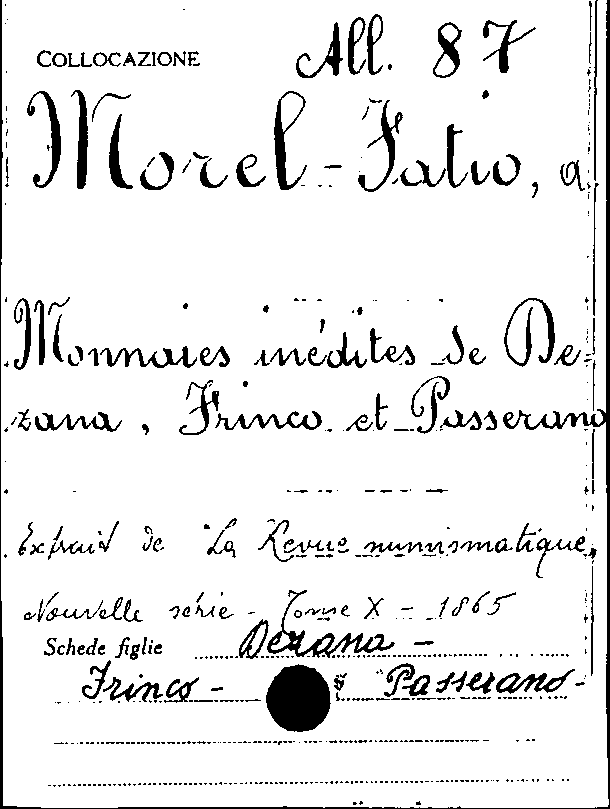 COLLOCAZIONE All. 87
Morel-Fatio, a.
Monnaies inédites de De=
zana, Frinco et Passerano
Extrait de "La Revue numismatique,
Nouvelle série - Tome X - 1865
Schede figlie Dezana -
Frinco - Passerano -